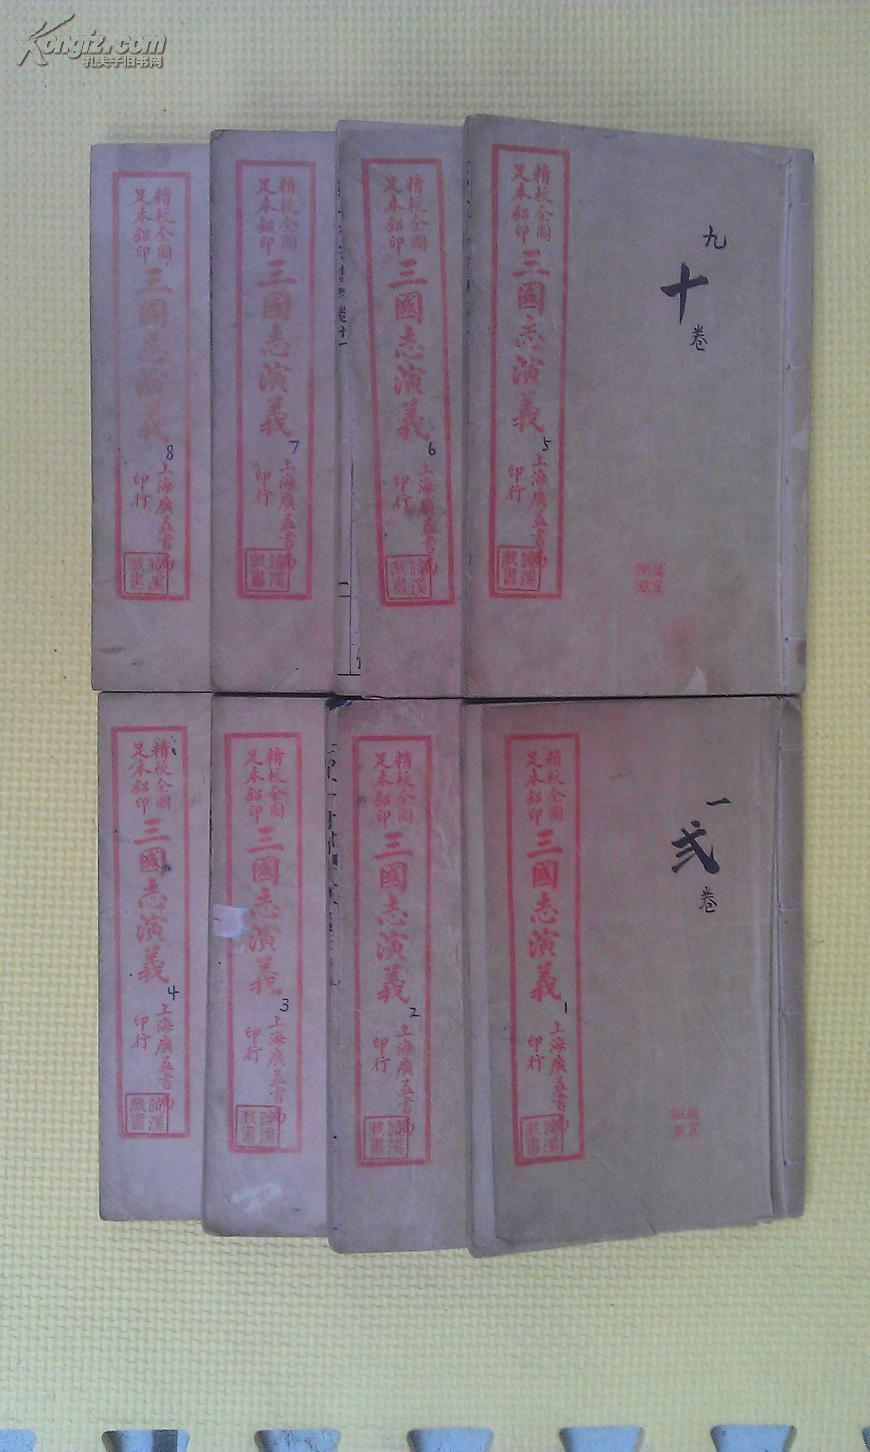 Kongfz.com
孔夫子旧书网
精校全圖
足本鉛印
三國志演義
8
上海廣益書局
印行
精校全圖
足本鉛印
三國志演義
7
上海廣益書局
印行
精校全圖
足本鉛印
三國志演義
6
上海廣益書局
印行
精校全圖
足本鉛印
三國志演義
5
上海廣益書局
印行
九
十
卷
精校全圖
足本鉛印
三國志演義
4
上海廣益書局
印行
精校全圖
足本鉛印
三國志演義
3
上海廣益書局
印行
精校全圖
足本鉛印
三國志演義
2
上海廣益書局
印行
精校全圖
足本鉛印
三國志演義
1
上海廣益書局
印行
一
弍
卷